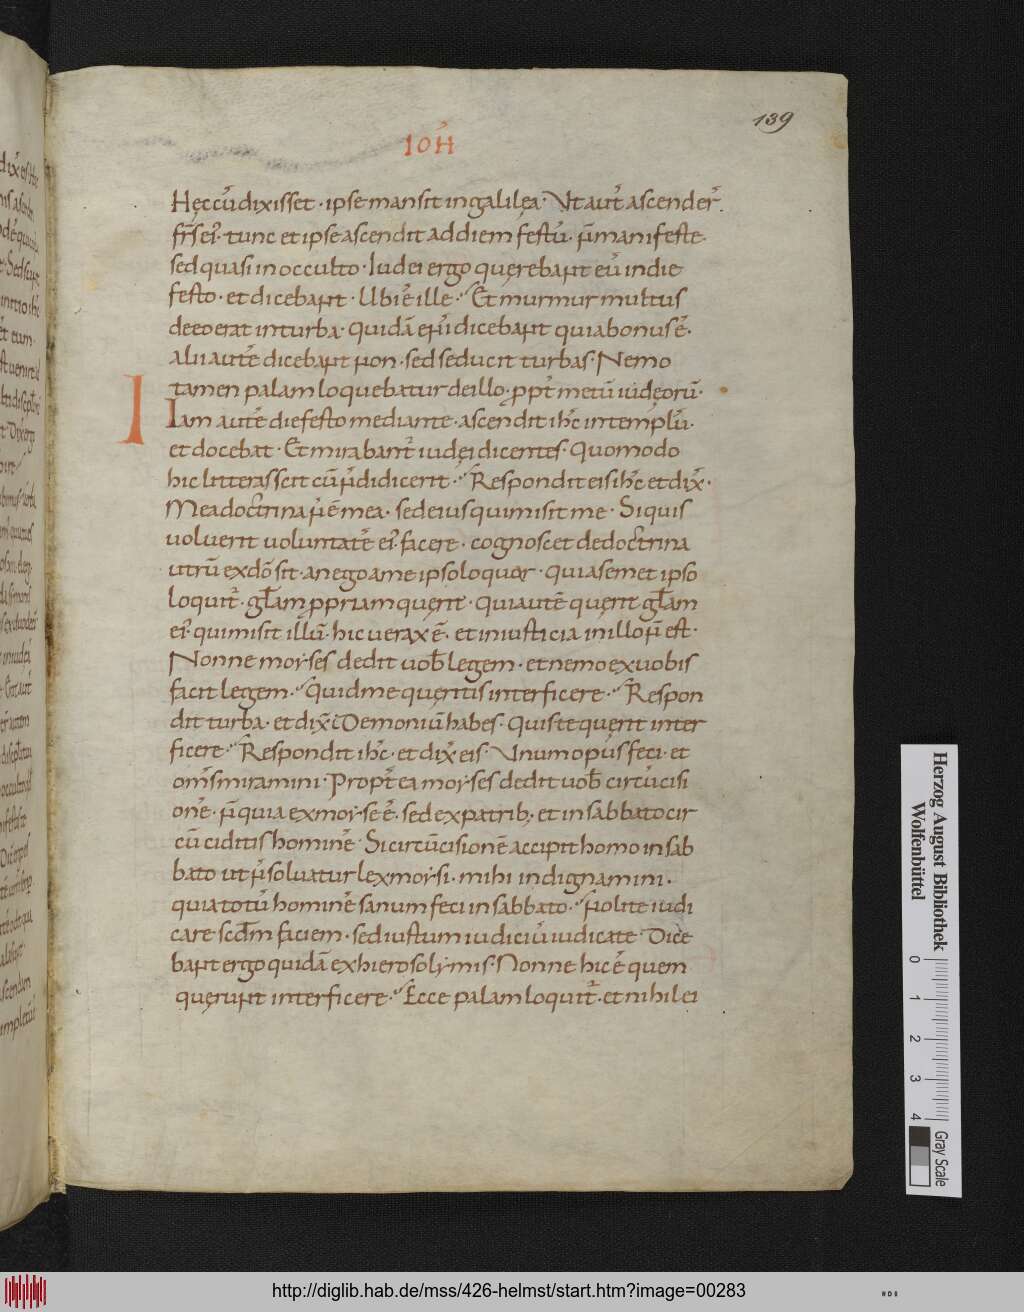 139
IOH̄
Hęc cū dixisset · ipse mansit in galilea · Vt aut̄ ascender̄
fr̄s ei᷒ · tunc et ipse ascendit ad diem festū · n̄ manifeste ·
sed quasi in occulto · Iudei ergo querebant eū in die
festo · et dicebant · Ubi ē ille · Et murmur multus
de eo erat in turba · quidā eni᷒ dicebant quia bonus ē ·
alii autē dicebant non · sed seducit turbas · Nemo
tamen palam loquebatur de illo · ꝓpt̄ metū iudęorū ·
I Iam autē die festo mediante · ascendit ih̄c in templū ·
et docebat · Et mirabant᷒ iudęi dicentes · Quomodo
hic litteras scit cū n̄ didicerit · Respondit eis ih̄c et dix̄ ·
Mea doctrina n̄ ē mea · sed eius qui misit me · Si quis
uoluerit uoluntatē ei᷒ facere · cognoscet de doctrina
utrū ex dō sit · an ego a me ipso loquor · Qui a semet ipso
loquit᷒ · gl̄am ꝓpriam querit · qui autē querit gl̄am
ei᷒ qui misit illū · hic uerax ē · et iniusticia in illo n̄ est ·
Nonne moyses dedit uob̄ legem · et nemo ex uobis
facit legem · Quid me queritis interficere · Respon
dit turba · et dix̄ · Demoniū habes · Quis te querit inter
ficere · Respondit ih̄c · et dix̄ eis · Vnum opus feci · et
om̄s miramini · Propt̄ ea moyses dedit uob̄ circūcisi
onē · n̄ quia ex moyse ē · sed ex patrib; · et in sabbato cir
cūciditis hominē · Si circūcisionē accipit homo in sab
bato ut n̄ soluatur lex moysi · mihi indignamini ·
quia totū hominē sanum feci in sabbato · Nolite iudi
care scd̄m faciem · sed iustum iudiciū iudicate · Dice
bant ergo quidā ex hierosolymis · Nonne hic ē quem
querunt interficere · Ecce palam loquit᷒ · et nihil ei
Herzog August Bibliothek
Wolfenbüttel
0 1 2 3 4
Gray Scale
http://diglib.hab.de/mss/426-helmst/start.htm?image=00283